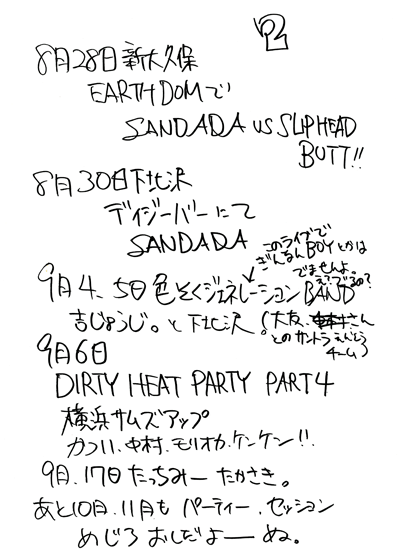 2
8月28日新大久保
EARTHDOMで
SANDADA VS SLIPHEAD
BUTT!!
8月30日下北沢
デイジーバーにて
SANDADA
このライブで
ざんるんBOYとかは
でませんよ。
9月4、5日色そくジェネレーションBAND
えっでるの?
吉じょうじ。と下北沢!
(大友、さん
とのサントラ
チーム)
9月6日
DIRTY HEAT PARTY PART4
横浜サムズアップ
カフリイ、中村、モリオカ、ケンケン!!
9月、17日たっちみーたかさき。
あと10月、11月もパーティー、セッション
めじろおしだよーぬ。